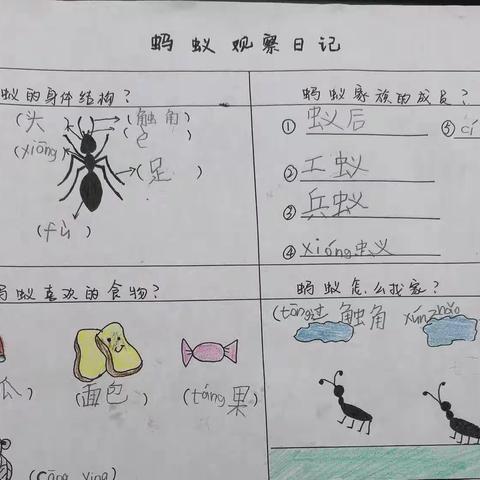 蚂蚁观察日记
蚁的身体结构?
(头)
(触角)
(è
(xiōng)
(足)
(fù)
蚂蚁家族的成员?
①蚁后
⑤cí
②工蚁
③兵蚁
④xióng蚁
蚂蚁喜欢的食物?
瓜)
(面包)
(táng果)
(cāng ying)
蚂蚁怎么找家?
(tōng过触角xúnzhǎo